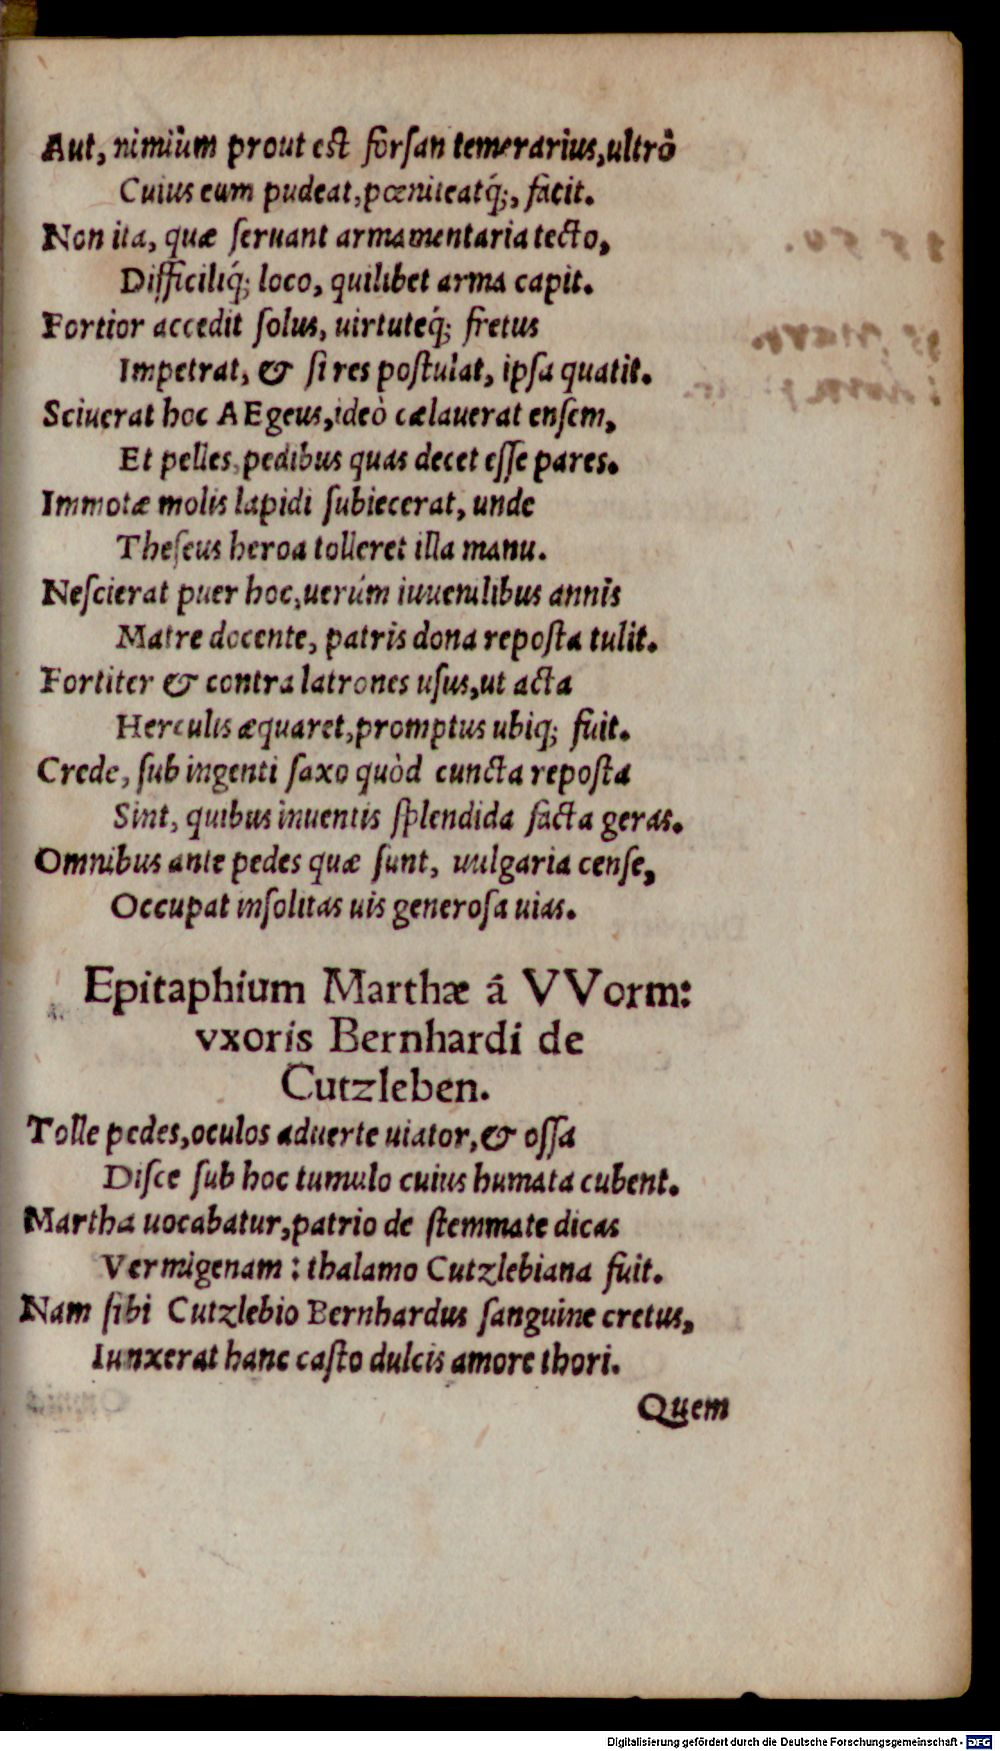 Aut, nimiùm prout est forsan temerarius, ultrò
Cuius eum pudeat, pœniteatq́;, facit.
Non ita, quæ seruant armamentaria tecto,
Difficiliq́; loco, quilibet arma capit.
Fortior accedit solus, uirtuteq́; fretus
Impetrat, & si res postulat, ipsa quatit.
Sciuerat hoc AEgeus, ideò cælauerat ensem,
Et pelles, pedibus quas decet esse pares.
Immotæ molis lapidi subiecerat, unde
Theseus heroa tolleret illa manu.
Nescierat puer hoc, uerúm iuuenilibus annis
Matre docente, patris dona reposta tulit.
Fortiter & contra latrones usus, ut acta
Herculis æquaret, promptus ubiq; fuit.
Crede, sub ingenti saxo quòd cuncta reposta
Sint, quibus inuentis splendida facta geras.
Omnibus ante pedes quæ sunt, uulgaria cense,
Occupat insolitas uis generosa uias.
Epitaphium Marthæ â VVorm:
vxoris Bernhardi de
Cutzleben.
Tolle pedes, oculos aduerte uiator, & ossa
Disce sub hoc tumulo cuius humata cubent.
Martha uocabatur, patrio de stemmate dicas
Vermigenam: thalamo Cutzlebiana fuit.
Nam sibi Cutzlebio Bernhardus sanguine cretus,
Iunxerat hanc casto dulcis amore thori.
Quem
Digitalisierung gefördert durch die Deutsche Forschungsgemeinschaft - DFG